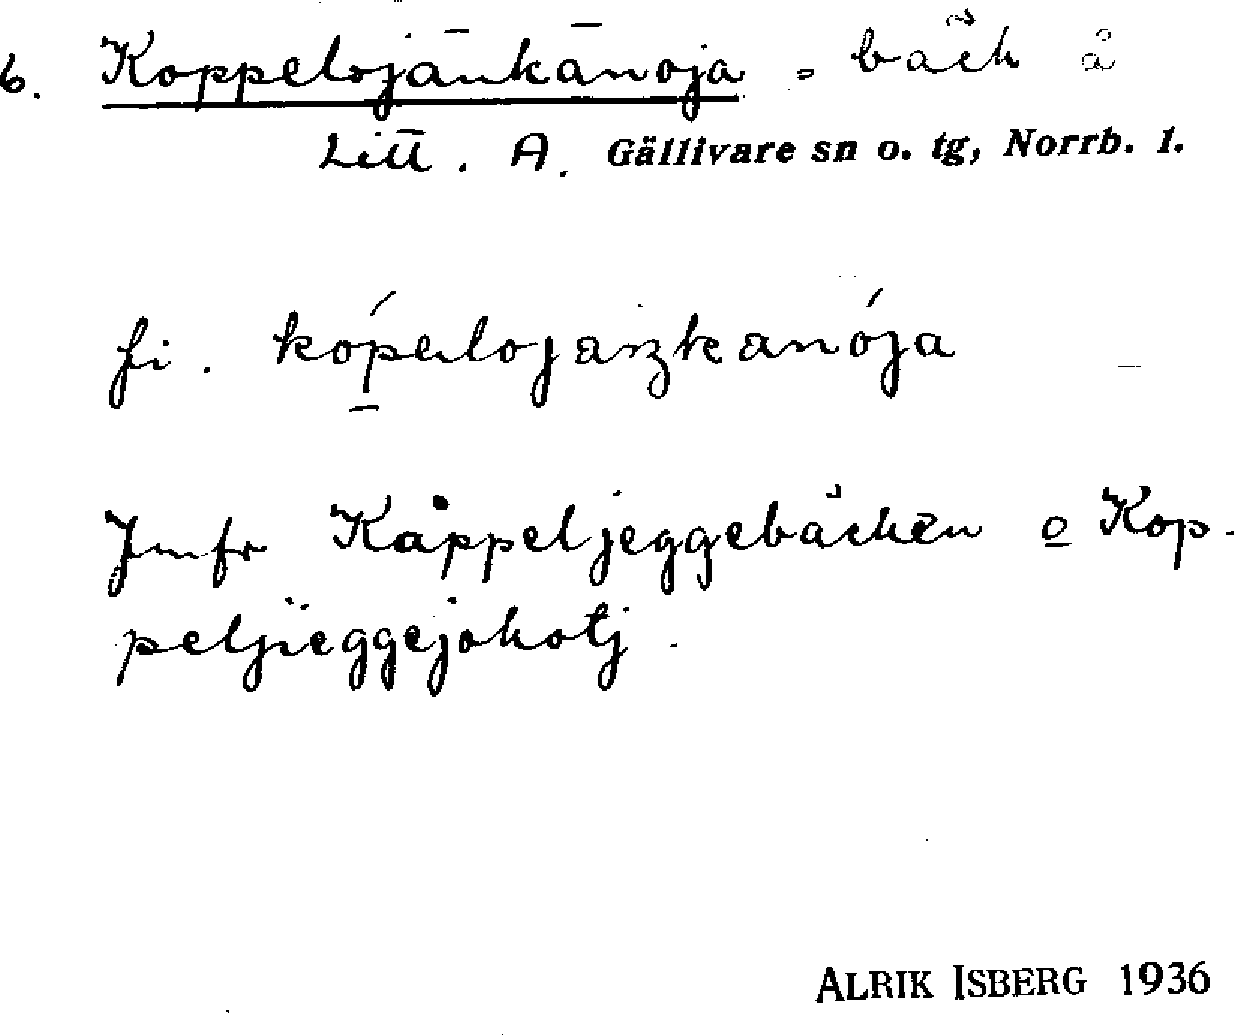 6. Koppelojänkänoja - bäck å
Litt. A. Gällivare sn o. tg, Norrb. l.
fi.
Jmfr Kåppeljeggebäcken o Kop-
peljieggejokotj.
ALRIK ISBERG 1936